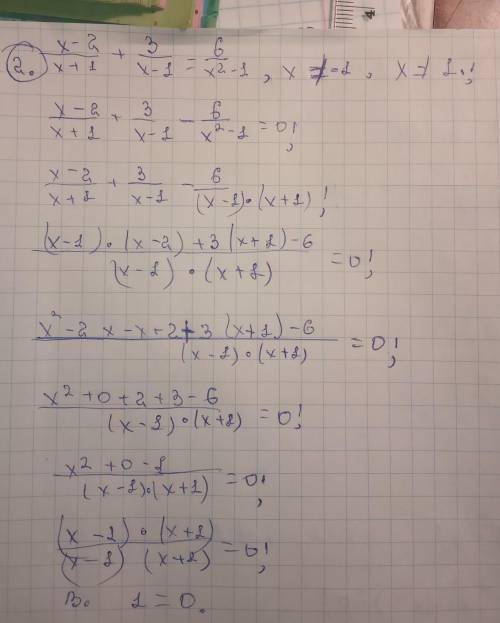 2. (x-2)/(x+1) + 3/(x-1) = 6/(x²-1), x ≠ -1, x ≠ 1.;
(x-2)/(x+1) + 3/(x-1) - 6/(x²-1) = 0;
(x-2)/(x+1) + 3/(x-1) - 6/((x-1)·(x+1));
((x-1)·(x-2)+3(x+1)-6)/((x-1)·(x+1)) = 0;
(x²-2x-x+2+3(x+1)-6)/((x-1)·(x+1)) = 0;
(x²+0+2+3-6)/((x-1)·(x+1)) = 0;
(x²+0-1)/((x-1)·(x+1)) = 0;
((x-1)·(x+1))/((x-1)(x+1)) = 0;
В. 1 = 0.